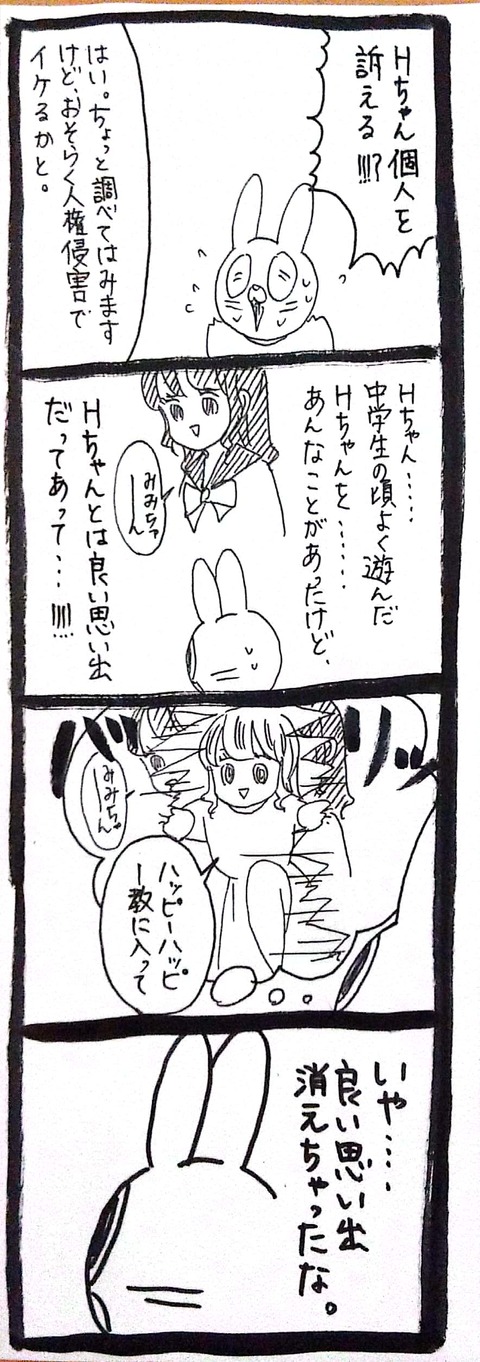 Hちゃん個人を
訴える!!!?
はい。ちょっと調べてはみます
けど、おそらく人権侵害で
イケるかと。
Hちゃん……
中学生の頃よく遊んだ
Hちゃんを……
あんなことがあったけど、
みみちゃ
ーん
Hちゃんとは良い思い出
だってあって…!!!!
バリッ
みみちゃ
ーん
ハッピーハッピ
ー教に入って
いや……
良い思い出
消えちゃったな。